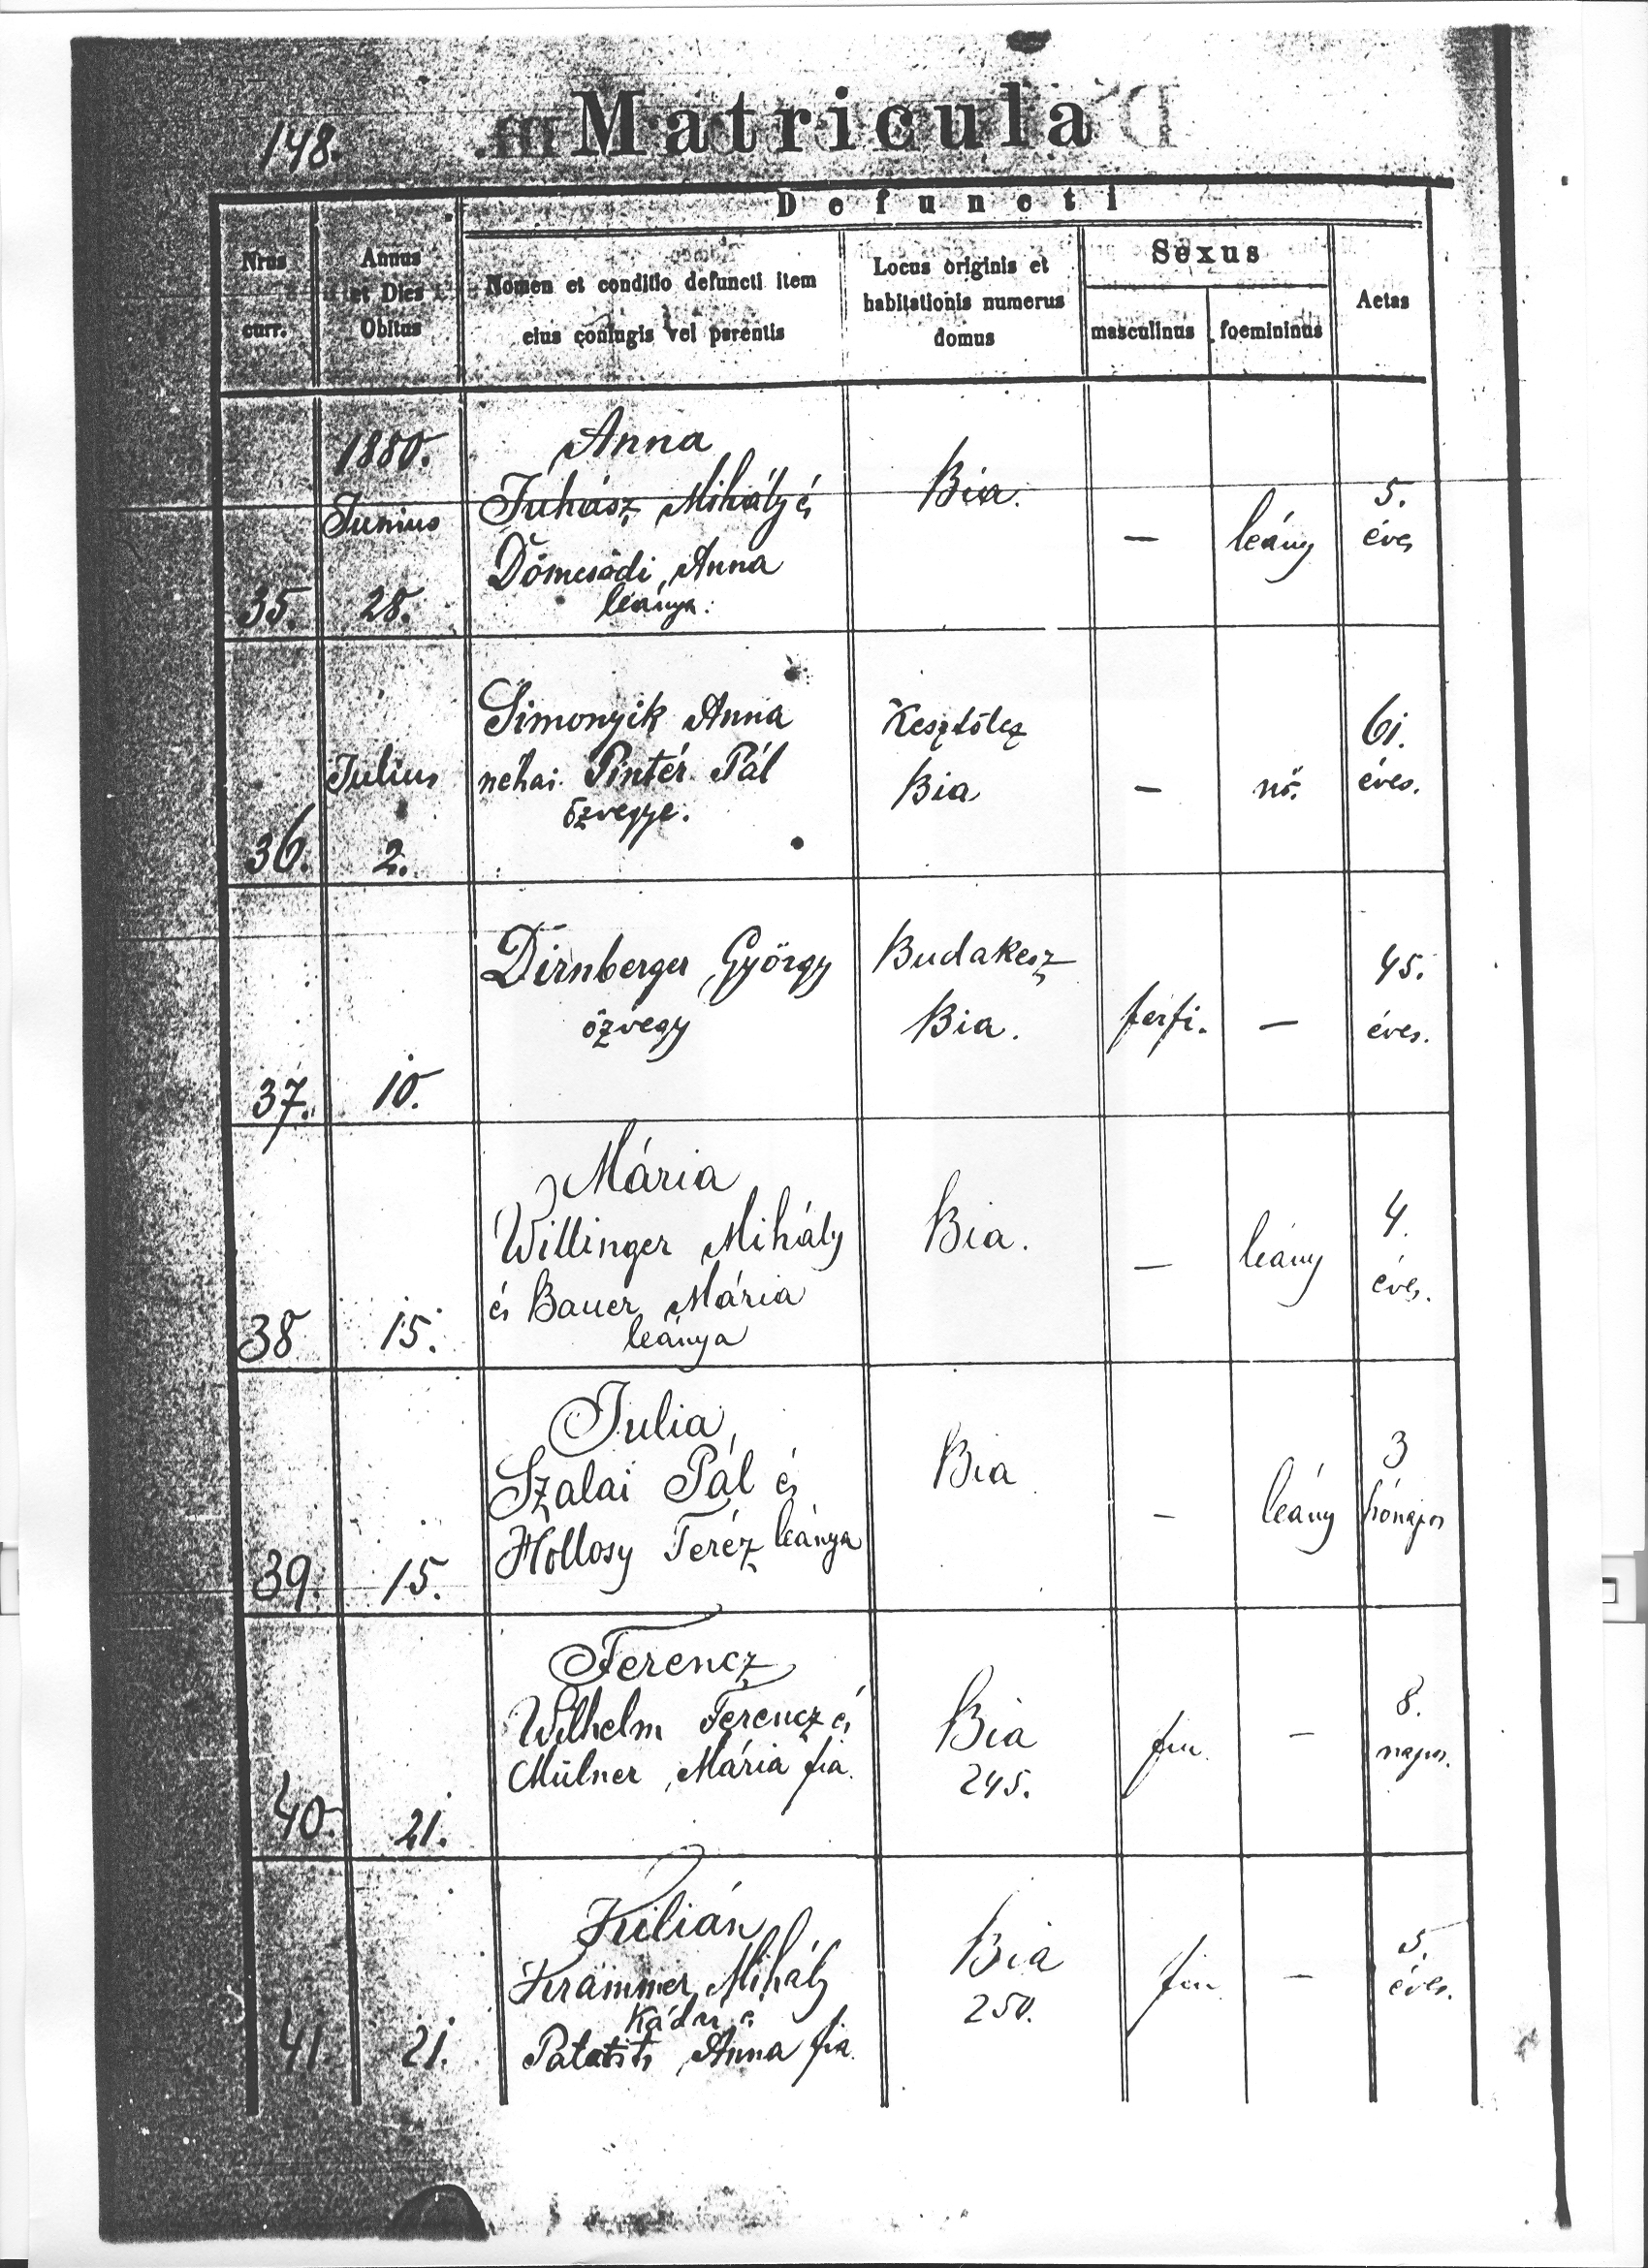 148.
Matricula
Defuncti
Nrus curr.
Annus et Dies Obitus
Nomen et conditio defuncti item eius coniugis vel parentis
Locus originis et habitationis numerus domus
Sexus
masculinus
foemininus
Aetas
1880.
Junius
35.
28.
Anna
Juhász Mihály és
Dömesödi Anna
leánya.
Bia.
—
leány
5.
éves
Julius
36.
2.
Simonyik Anna
néhai Pintér Pál
özvegye.
Kesztölcz
Bia
—
nő.
61.
éves.
37.
10.
Dirnberger György
özvegy
Budakesz
Bia.
férfi.
—
45.
éves.
38
15.
Mária
Willinger Mihály
és Bauer Mária
leánya
Bia.
—
leány
4.
éves.
39.
15.
Julia
Szalai Pál és
Hollosy Teréz leánya
Bia
—
leány
3
hónapos
40.
21.
Ferencz
Wilhelm Ferencz és
Mülner Mária fia.
Bia
245.
fiu.
—
8.
napos.
41.
21.
Kilián
Krammer Mihály
Kádár és
Anna fia.
Bia
250.
fiu
—
5.
éves.